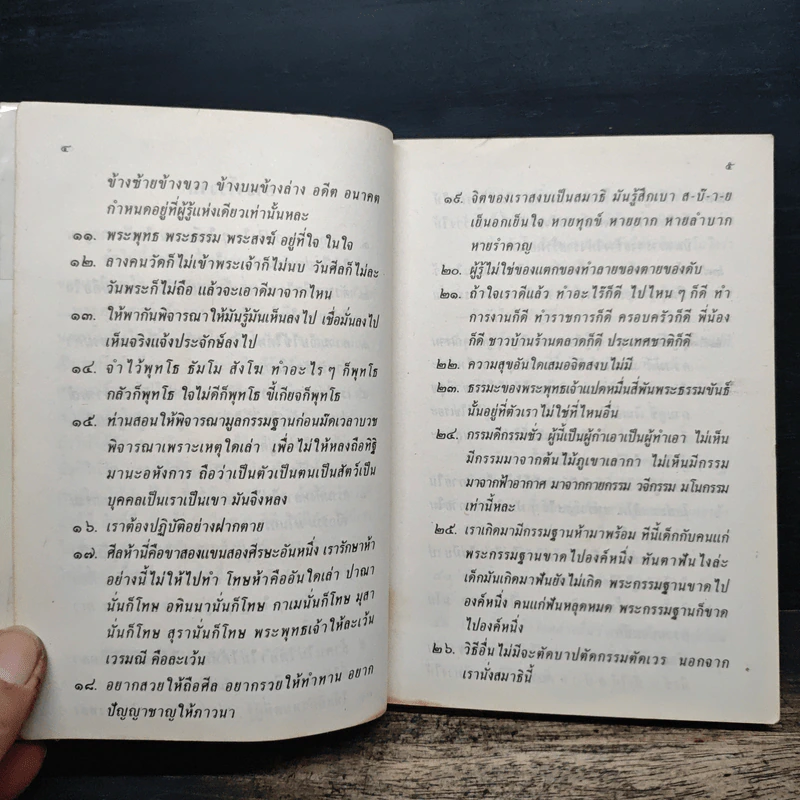 ๔
ข้างซ้ายข้างขวา ข้างบนข้างล่าง อดีต อนาคต
กำหนดอยู่ที่ผู้รู้แห่งเดียวเท่านั้นหละ
๑๑. พระพุทธ พระธรรม พระสงฆ์ อยู่ที่ใจ ในใจ
๑๒. ลางคนวัดก็ไม่เข้าพระเจ้าก็ไม่นบ วันศีลก็ไม่ละ
วันพระก็ไม่ถือ แล้วจะเอาดีมาจากไหน
๑๓. ให้พากันพิจารณาให้มันรู้มันเห็นลงไป เชื่อมั่นลงไป
เห็นจริงแจ้งประจักษ์ลงไป
๑๔. จำไว้พุทโธ ธัมโม สังโฆ ทำอะไรๆ ก็พุทโธ
กลัวก็พุทโธ ใจไม่ดีก็พุทโธ ขี้เกียจก็พุทโธ
๑๕. ท่านสอนให้พิจารณามูลกรรมฐานก่อนมัดเวลาบวช
พิจารณาเพราะเหตุใดเล่า เพื่อไม่ให้หลงถือทิฐิ
มานะอหังการ ถือว่าเป็นตัวเป็นตนเป็นสัตว์เป็น
บุคคลเป็นเราเป็นเขา มันจึงหลง
๑๖. เราต้องปฏิบัติอย่างฝากตาย
๑๗. ศีลห้านี้คือขาสองแขนสองศีรษะอันหนึ่ง เรารักษาห้า
อย่างนี้ไม่ให้ไปทำ โทษห้าคืออันใดเล่า ปาณา
นั่นก็โทษ อทินนานั่นก็โทษ กาเมนั่นก็โทษ มุสา
นั่นก็โทษ สุรานั่นก็โทษ พระพุทธเจ้าให้ละเว้น
เวรมณี คือละเว้น
๑๘. อยากสวยให้ถือศีล อยากรวยให้ทำทาน อยาก
ปัญญาชาญให้ภาวนา
๕
๑๙. จิตของเราสงบเป็นสมาธิ มันรู้สึกเบา ส-บ๊า-ย
เย็นอกเย็นใจ หายทุกข์ หายยาก หายลำบาก
หายรำคาญ
๒๐. ผู้รู้ไม่ใช่ของแตกของทำลายของตายของดับ
๒๑. ถ้าใจเราดีแล้ว ทำอะไรก็ดี ไปไหนๆ ก็ดี ทำ
การงานก็ดี ทำราชการก็ดี ครอบครัวก็ดี พี่น้อง
ก็ดี ชาวบ้านร้านตลาดก็ดี ประเทศชาติก็ดี
๒๒. ความสุขอันใดเสมอจิตสงบไม่มี
๒๓. ธรรมะของพระพุทธเจ้าแปดหมื่นสี่พันพระธรรมขันธ์
นั้นอยู่ที่ตัวเราไม่ใช่ที่ไหนอื่น
๒๔. กรรมดีกรรมชั่ว ผู้นี้เป็นผู้กำเอาเป็นผู้ทำเอา ไม่เห็น
มีกรรมมาจากต้นไม้ภูเขาเลากา ไม่เห็นมีกรรม
มาจากฟ้าอากาศ มาจากกายกรรม วจีกรรม มโนกรรม
เท่านี้หละ
๒๕. เราเกิดมามีกรรมฐานห้ามาพร้อม ทีนี้เด็กกับคนแก่
พระกรรมฐานขาดไปองค์หนึ่ง ทันตาฟันไงล่ะ
เด็กมันเกิดมาฟันยังไม่เกิด พระกรรมฐานขาดไป
องค์หนึ่ง คนแก่ฟันหลุดหมด พระกรรมฐานก็ขาด
ไปองค์หนึ่ง
๒๖. วิธีอื่นไม่มีจะตัดบาปตัดกรรมตัดเวร นอกจาก
เรานั่งสมาธินี้